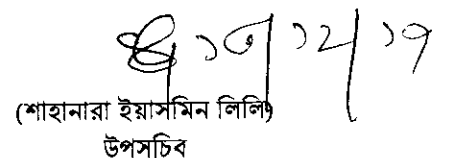 ১৩/১২/১৭
(শাহানারা ইয়াসমিন লিলি)
উপসচিব